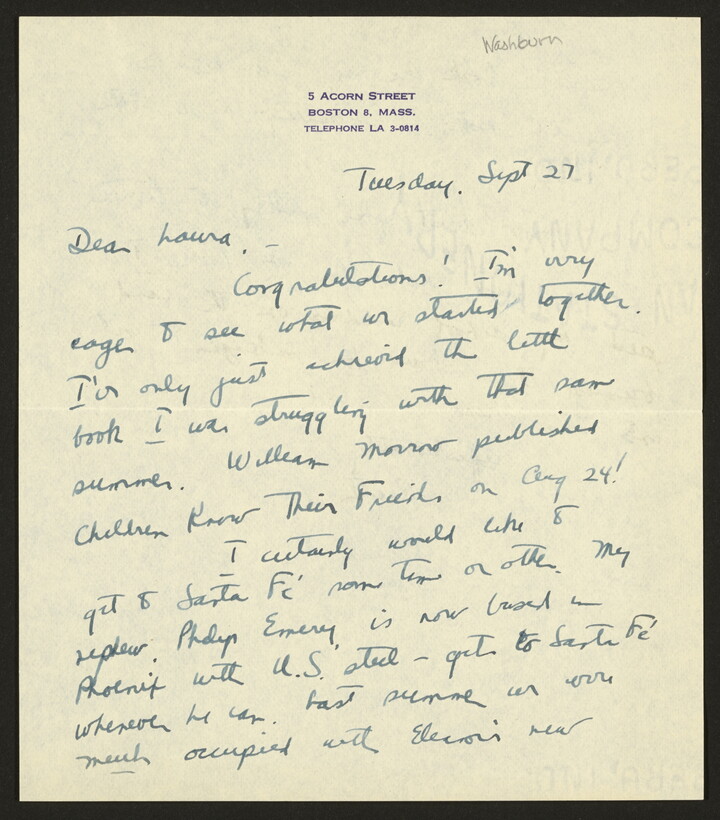 Washburn
5 ACORN STREET
BOSTON 8, MASS.
TELEPHONE LA 3-0814
Tuesday. Sept 27
Dear Laura. –
Congratulations! I'm very
eager to see what we started together.
I've only just achieved the little
book I was struggling with that same
summer. William Morrow published
Children Know Their Friends on Aug 24!
I certainly would like to
get to Santa Fé some time or other. My
nephew, Philip Emerey is now based in
Phoenix with U.S. steel – gets to Santa Fé
whenever he can. Last summer we were
much occupied with Eleanor's new